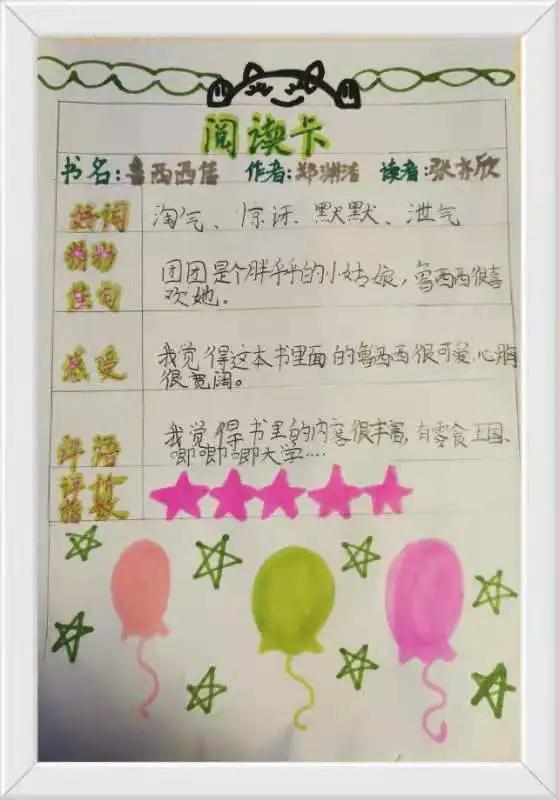 阅读卡
书名:鲁西西传 作者:郑渊洁 读者:张亦欣
好词 淘气、惊讶、默默、泄气
精彩
佳句
团团是个胖乎乎的小姑娘,鲁西西很喜
欢她。
感受
我觉得这本书里面的鲁西西很可爱,心胸
很宽阔。
评语
我觉得书里的内容很丰富,有零食王国、
唧唧唧大学····
评价
指数